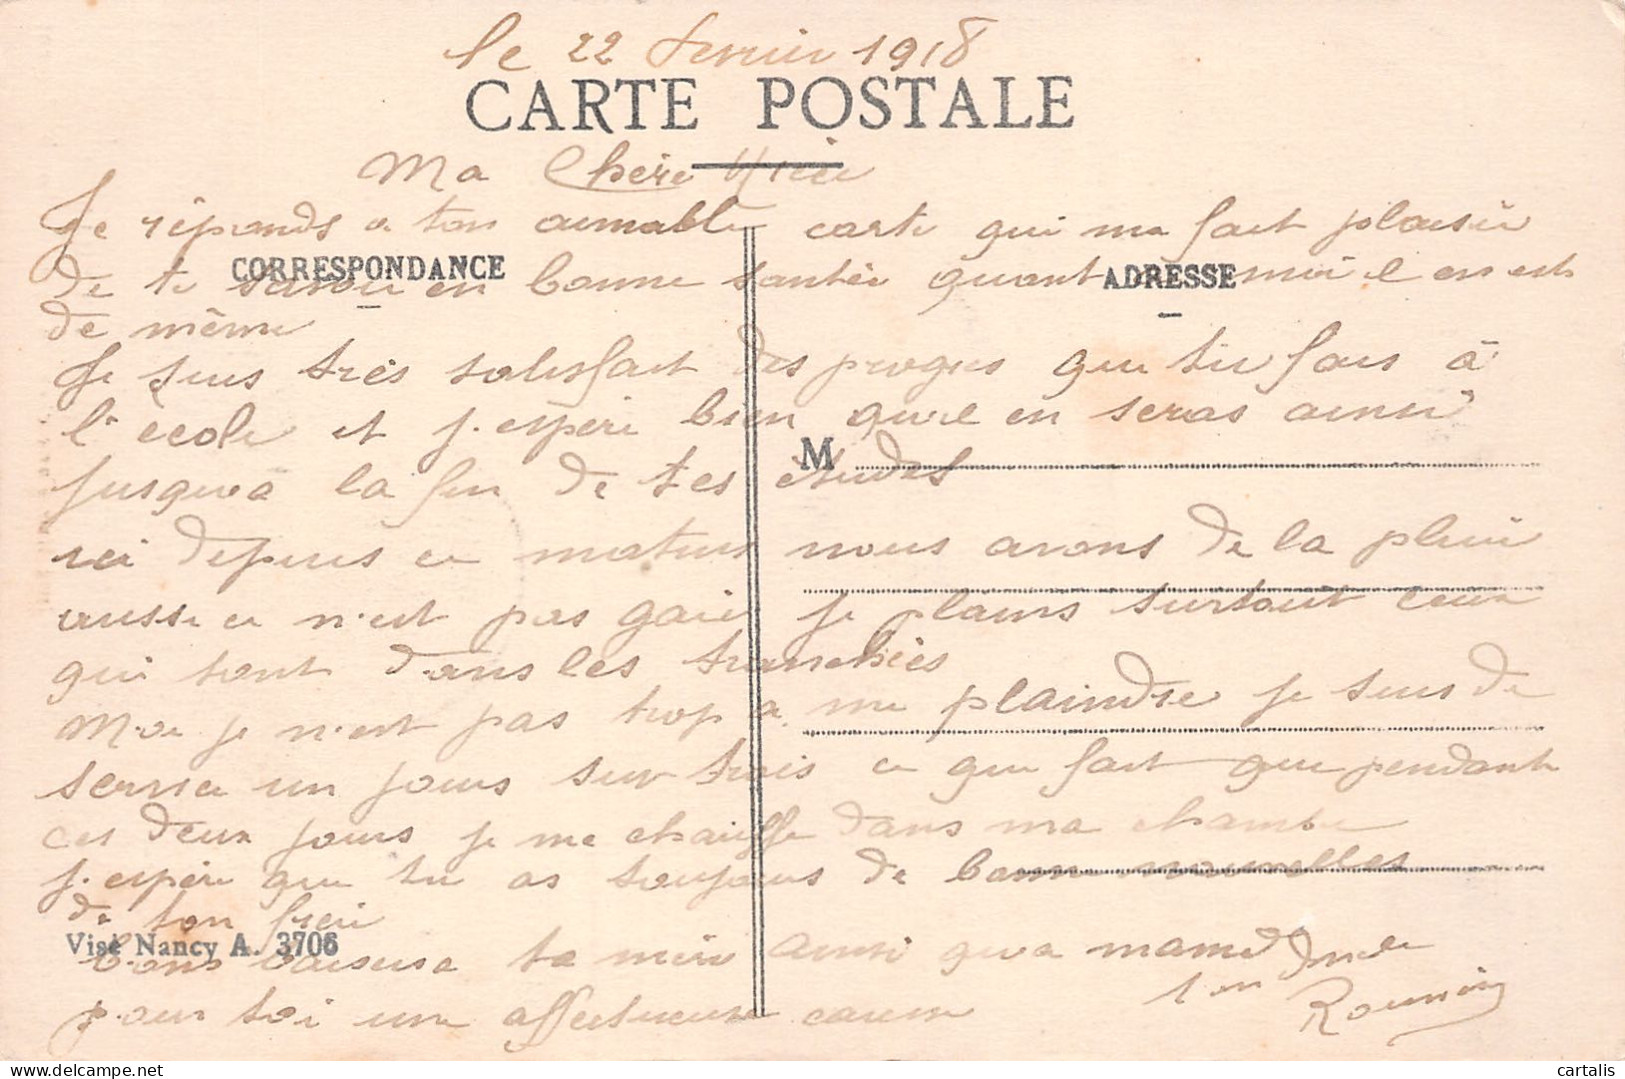 le 22 fevrier 1918
CARTE POSTALE
Ma Chère
Je réponds a ton aimable carte qui me fait plaisir
CORRESPONDANCE
ADRESSE
de te savoir en bonne santée quant moi il en est
de même
Je suis très satisfait des progres que tu fais à
l'école et j.espère bien qu'il en seras ainsi
M
jusqu'a la fin de tes études
ici depuis ce matin nous avons de la pluie
aussi ce n'est pas gaie je plains surtout ceux
qui sont dans les tranchées
Moi je n'est pas trop a me plaindre je suis de
service un jour sur trois ce qui fait que pendant
ces deux jours je me chauffe dans ma chambre
j.espère que tu as toujours de bonne nouvelles
de ton frère
Visé Nancy A. 3706
Bons baisers a ta mère ainsi qu'a
pour toi une affectueuse caresse
ton